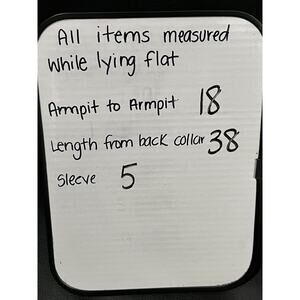 All items measured
while lying flat
Armpit to Armpit 18
Length from back collar 38
Sleeve 5